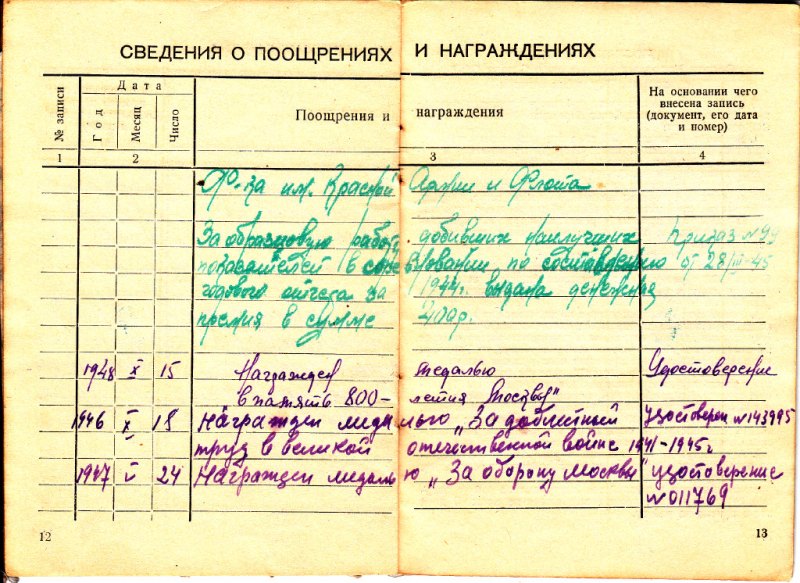 СВЕДЕНИЯ О ПООЩРЕНИЯХ И НАГРАЖДЕНИЯХ
№ записи
Дата
Год
Месяц
Число
Поощрения и награждения
На основании чего
внесена запись
(документ, его дата
и номер)
1 2 3 4
Ф-ка им. Красной Армии и Флота
За образцовую работу добивших наилучших Приказ №99
показателей в соревновании по составлению от 28/III-45
годового отчета за 1944г. выдана денежная
премия в сумме
1948 X 15 Награжден медалью Удостоверение
"В память 800-летия Москвы"
1946 X 18 Награжден медалью „За доблестный удостовер №143995
труд в великой отечественной войне 1941-1945г
1947 V 24 Награжден медалью „За оборону Москвы" удостоверение
№011769
12
13